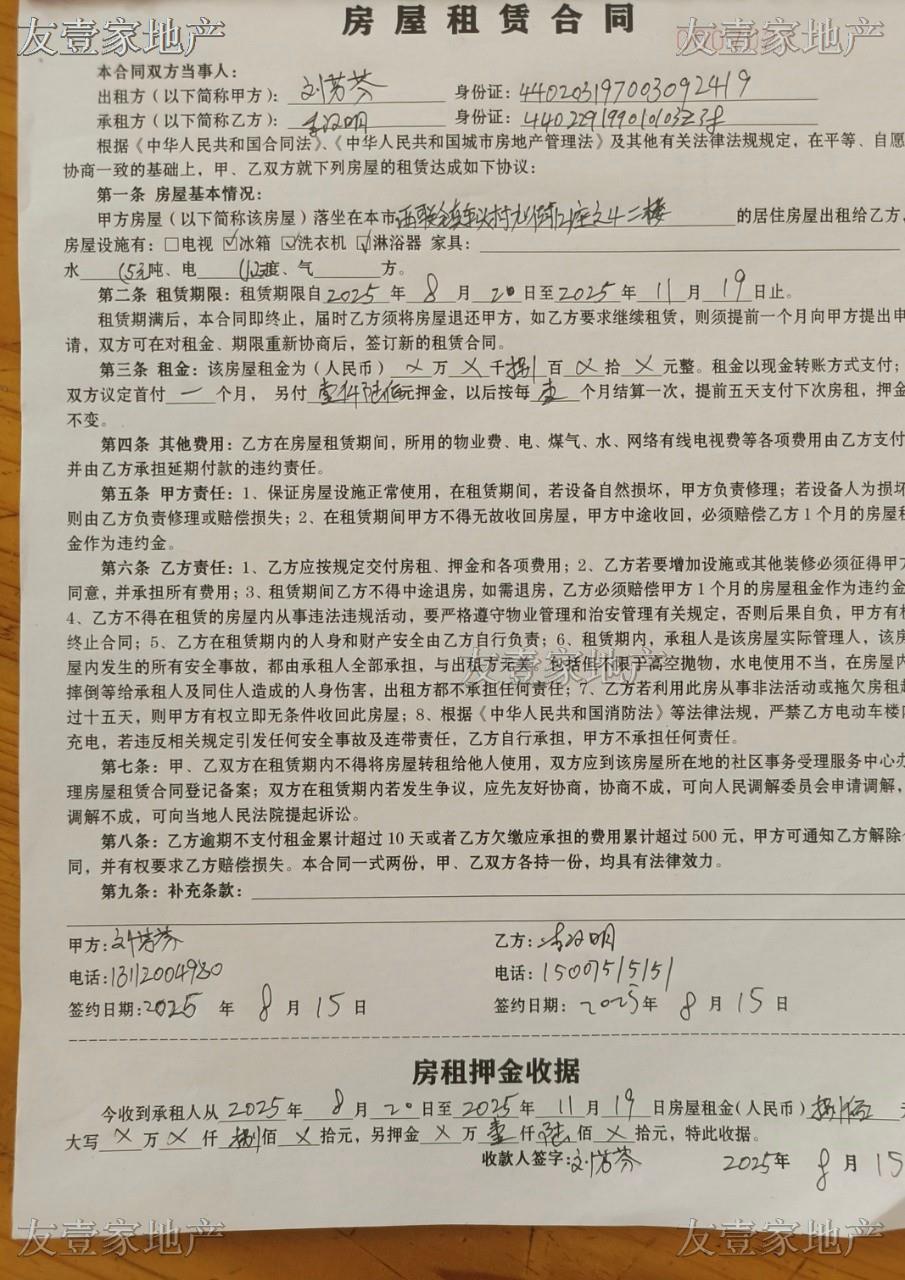 友壹家地产 友壹家地产
房屋租赁合同
本合同双方当事人：
出租方（以下简称甲方）：刘芳芬 身份证：440203197003092419
承租方（以下简称乙方）： 身份证：
根据《中华人民共和国合同法》、《中华人民共和国城市房地产管理法》及其他有关法律法规规定，在平等、自愿
协商一致的基础上，甲、乙双方就下列房屋的租赁达成如下协议：
第一条 房屋基本情况：
甲方房屋（以下简称该房屋）落坐在本市 的居住房屋出租给乙方
房屋设施有：□电视 ☑冰箱 ☑洗衣机 ☑淋浴器 家具：
水 吨、电 度、气 方。
第二条 租赁期限：租赁期限自2025年8月20日至2025年11月19日止。
租赁期满后，本合同即终止，届时乙方须将房屋退还甲方，如乙方要求继续租赁，则须提前一个月向甲方提出申
请，双方可在对租金、期限重新协商后，签订新的租赁合同。
第三条 租金：该房屋租金为（人民币）×万×千捌百×拾×元整。租金以现金转账方式支付；
双方议定首付一个月，另付壹仟陆佰元押金，以后按每壹个月结算一次，提前五天支付下次房租，押金
不变。
第四条 其他费用：乙方在房屋租赁期间，所用的物业费、电、煤气、水、网络有线电视费等各项费用由乙方支付
并由乙方承担延期付款的违约责任。
第五条 甲方责任：1、保证房屋设施正常使用，在租赁期间，若设备自然损坏，甲方负责修理；若设备人为损坏
则由乙方负责修理或赔偿损失；2、在租赁期间甲方不得无故收回房屋，甲方中途收回，必须赔偿乙方1个月的房屋租
金作为违约金。
第六条 乙方责任：1、乙方应按规定交付房租、押金和各项费用；2、乙方若要增加设施或其他装修必须征得甲方
同意，并承担所有费用；3、租赁期间乙方不得中途退房，如需退房，乙方必须赔偿甲方1个月的房屋租金作为违约金
4、乙方不得在租赁的房屋内从事违法违规活动，要严格遵守物业管理和治安管理有关规定，否则后果自负，甲方有权
终止合同；5、乙方在租赁期内的人身和财产安全由乙方自行负责；6、租赁期内，承租人是该房屋实际管理人，该房
屋内发生的所有安全事故，都由承租人全部承担，与出租方无关。包括但不限于高空抛物，水电使用不当，在房屋内
摔倒等给承租人及同住人造成的人身伤害，出租方都不承担任何责任；7、乙方若利用此房从事非法活动或拖欠房租超
过十五天，则甲方有权立即无条件收回此房屋；8、根据《中华人民共和国消防法》等法律法规，严禁乙方电动车楼内
充电，若违反相关规定引发任何安全事故及连带责任，乙方自行承担，甲方不承担任何责任。
友壹家地产
第七条：甲、乙双方在租赁期内不得将房屋转租给他人使用，双方应到该房屋所在地的社区事务受理服务中心办
理房屋租赁合同登记备案；双方在租赁期内若发生争议，应先友好协商，协商不成，可向人民调解委员会申请调解，
调解不成，可向当地人民法院提起诉讼。
第八条：乙方逾期不支付租金累计超过10天或者乙方欠缴应承担的费用累计超过500元，甲方可通知乙方解除合
同，并有权要求乙方赔偿损失。本合同一式两份，甲、乙双方各持一份，均具有法律效力。
第九条：补充条款：
甲方：刘芳芬 乙方：
电话：13112004980 电话：15007515151
签约日期：2025年8月15日 签约日期：2025年8月15日
房租押金收据
今收到承租人从2025年8月20日至2025年11月19日房屋租金（人民币）捌佰
大写×万×仟捌佰×拾元，另押金×万壹仟陆佰×拾元，特此收据。
收款人签字：刘芳芬 2025年8月15
友壹家地产 友壹家地产